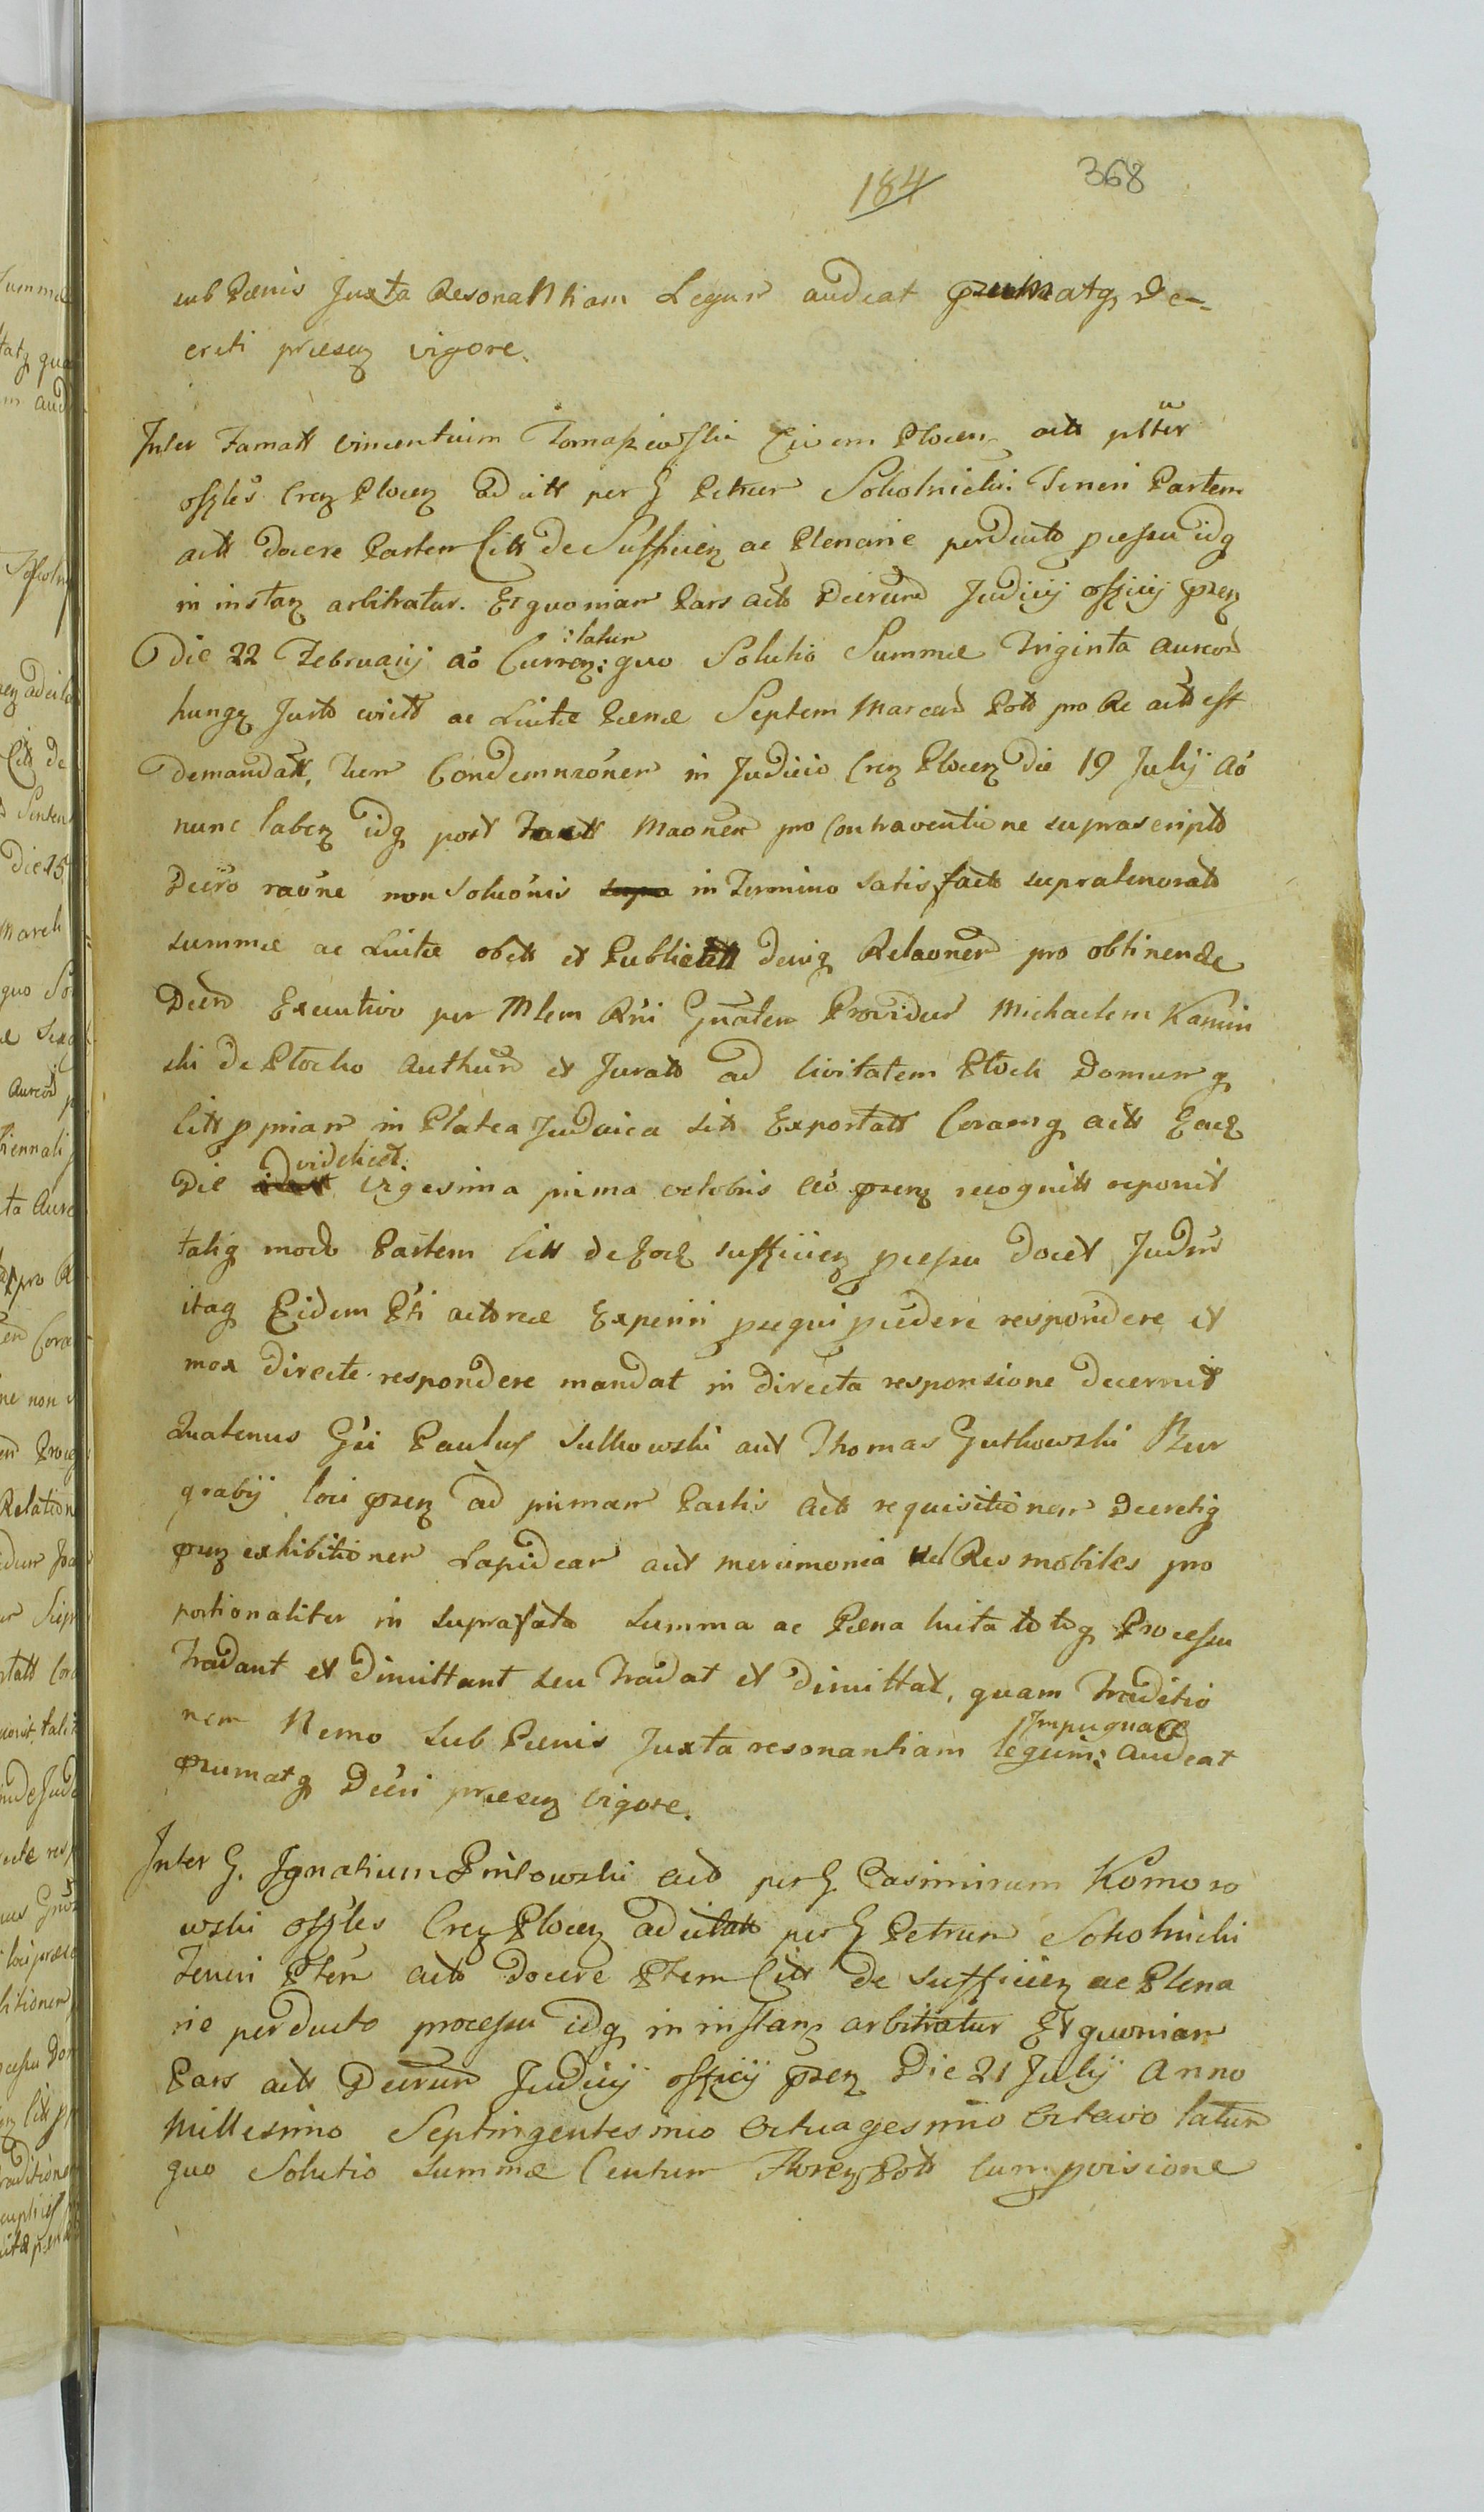 184 368
sub Pænis Juxta Resonantiam Legum audeat præsumatq De-
creti præsenz vigore.
Inter Famatt Vincentium Tomaszewski Civem Plocen actt pltter
offles Crez Plocen ad citt per G Petrum Sokolnicki Teneri Partem
actt docere Partem Citt de Sufficien ac Plenarie perducto pcessu idq
in instanz arbitratur. Et quoniam Pars acto Decretum Judicij officij przenz
Die 22 Februarij aó Currenz: latum quo Solutio Summæ Triginta aureor
hungz Justo victt ac Luitæ Pænæ Septem Marcar Poll pro Re actt est
Demandatt, Tum Condemnaónem in Judicio Crez Plocenz die 19 Julij Aó
nunc labenz idq post Factt Maonem pro Contraventione suprascripto
Decró raóne non soluónis in Termino satisfacto supratenorato
summæ ac Luitæ obtt et Publicatt deniq Relaonem pro obtinendo
Decro Executivo per Mlem Rni Gnalem Providum Michaelem Kamin
ski de Plocko Authum et Jurato ad Civitatem Plock Domumq
Citt ppriam in Platea Judaica sitt Exportatt Coramq actt Eadz
Die videlicet: Vigesima prima octobris aó przenz recognitt reponit
taliq modo Partem Citt de Eodz sufficienz pcessu docet Judm
itaq Eidem Pti actoreæ Experiri psequi pcedere respondere et
mox directe respondere mandat in directa responsione decernit
Quatenus Gsi Paulus Sulkowski aut Thomas Gutkowski Bur
grabij loci przenz ad primam Partis actt requisitionem Decretiq
przenz exhibitionem Lapideam aut merimonia vel Res mobiles pro
portionaliter in suprafato summa ac Pæna luita totoq Processu
Tradant et dimittant seu Tradat et dimittat, quam Traditio
nem Nemo Sub Pænis Juxta resonantiam legum: Impugnare audeat
præsumatq Decri præsenz vigore.
Inter G. Ignatium Piwowski act per G Casimirum Komoro
wski offles Crez Plocenz ad citatt per G Petrum Sokolnicki
Teneri Ptem acto docere Ptem Citt de sufficienz ac Plena
rie perducto processu idq in instanz arbitratur Et quoniam
Pars actt Decretum Judicij officij przenz Die 21 Julij Anno
Millesimo Septingentesimo Octuagesimo Octavo latum
quo Solutio summæ Centum Florenz Poll cum pvisione